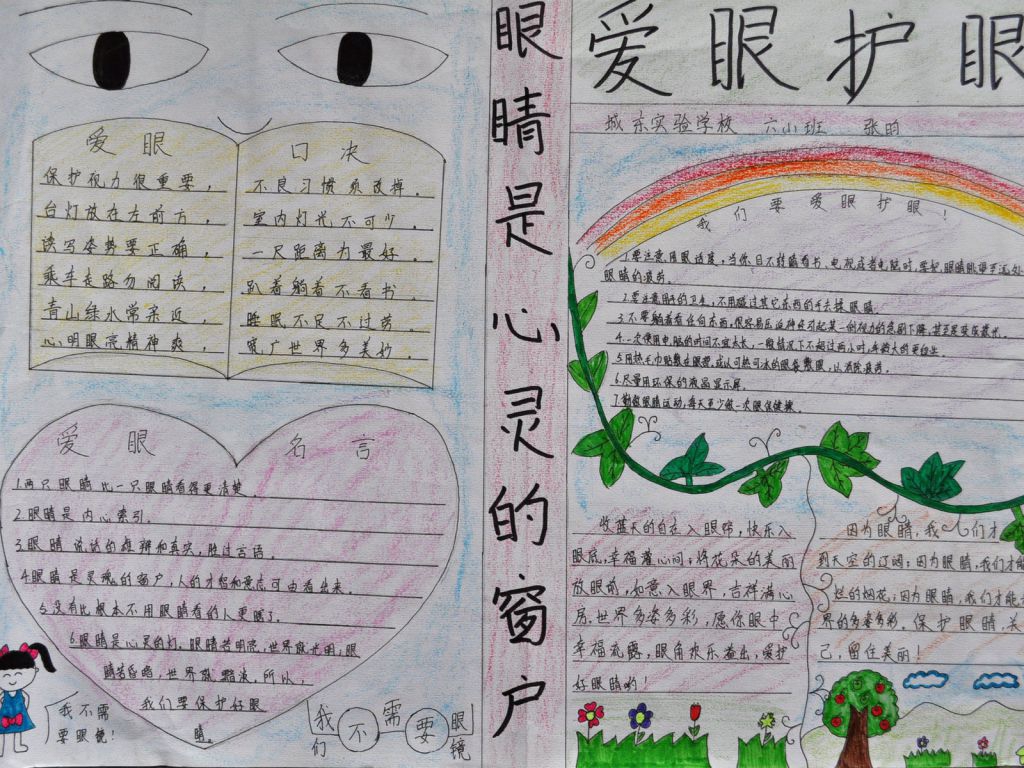 爱眼护眼
城东实验学校 六小班 张昀
眼睛是心灵的窗户
爱眼
保护视力很重要，
台灯放在左前方，
读写姿势要正确，
乘车走路勿阅读，
青山绿水常亲近，
心明眼亮精神爽，
口决
不良习惯须改掉。
室内灯光不可少。
一尺距离为最好。
趴着躺着不看书。
睡眠不足不过劳。
宽广世界多美妙。
爱眼 名言
1.两只眼睛比一只眼睛看得更清楚
2.眼睛是内心索引.
3.眼睛说话的雄辩和真实，胜过言语.
4.眼睛是灵魂的窗户，人的才智和意志可由看出来.
5.没有比根本不用眼睛看的人更瞎了.
6.眼睛是心灵的灯，眼睛若明亮，世界就光明，眼
睛若昏暗，世界就黯淡，所以，
我们要保护好眼
睛。
我不需
要眼镜！
我们不需要眼镜
我们要爱眼护眼！
1.要注意用眼适度，当你目不转睛看书、电视或者电脑时，
眼睛的疲劳.
2.要注意用手的卫生，不用碰过其它东西的手去揉眼睛.
3.不要躺着看任何东西，很容易
4.一次使用电脑的时间不宜太长，一般情况下不超过两小时，年龄大的更应
5.用热毛巾贴敷在眼部，或以可热可冰的眼袋敷眼，以消除疲劳.
6.尽量用环保的液晶显示屏.
7.勤做眼睛运动，每天至少做一次眼保健操.
收蓝天的自在入眼帘，快乐入
眼底，幸福灌心间；将花朵的美丽
放眼前，如意入眼界，吉祥满心
房.世界多姿多彩，愿你眼中
幸福流露，眼角欢乐溢出，爱护
好眼睛哟！
因为眼睛，我们才
到天空的辽阔；因为眼睛，我们才能
烂的烟花；因为眼睛，我们才能
界的多姿多彩。保护眼睛，关
己，留住美丽！